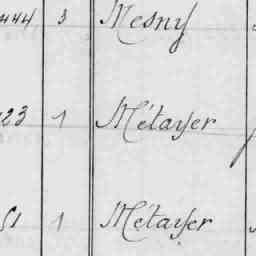 444 3 Mesny
23 1 Métayer
51 1 Métayer